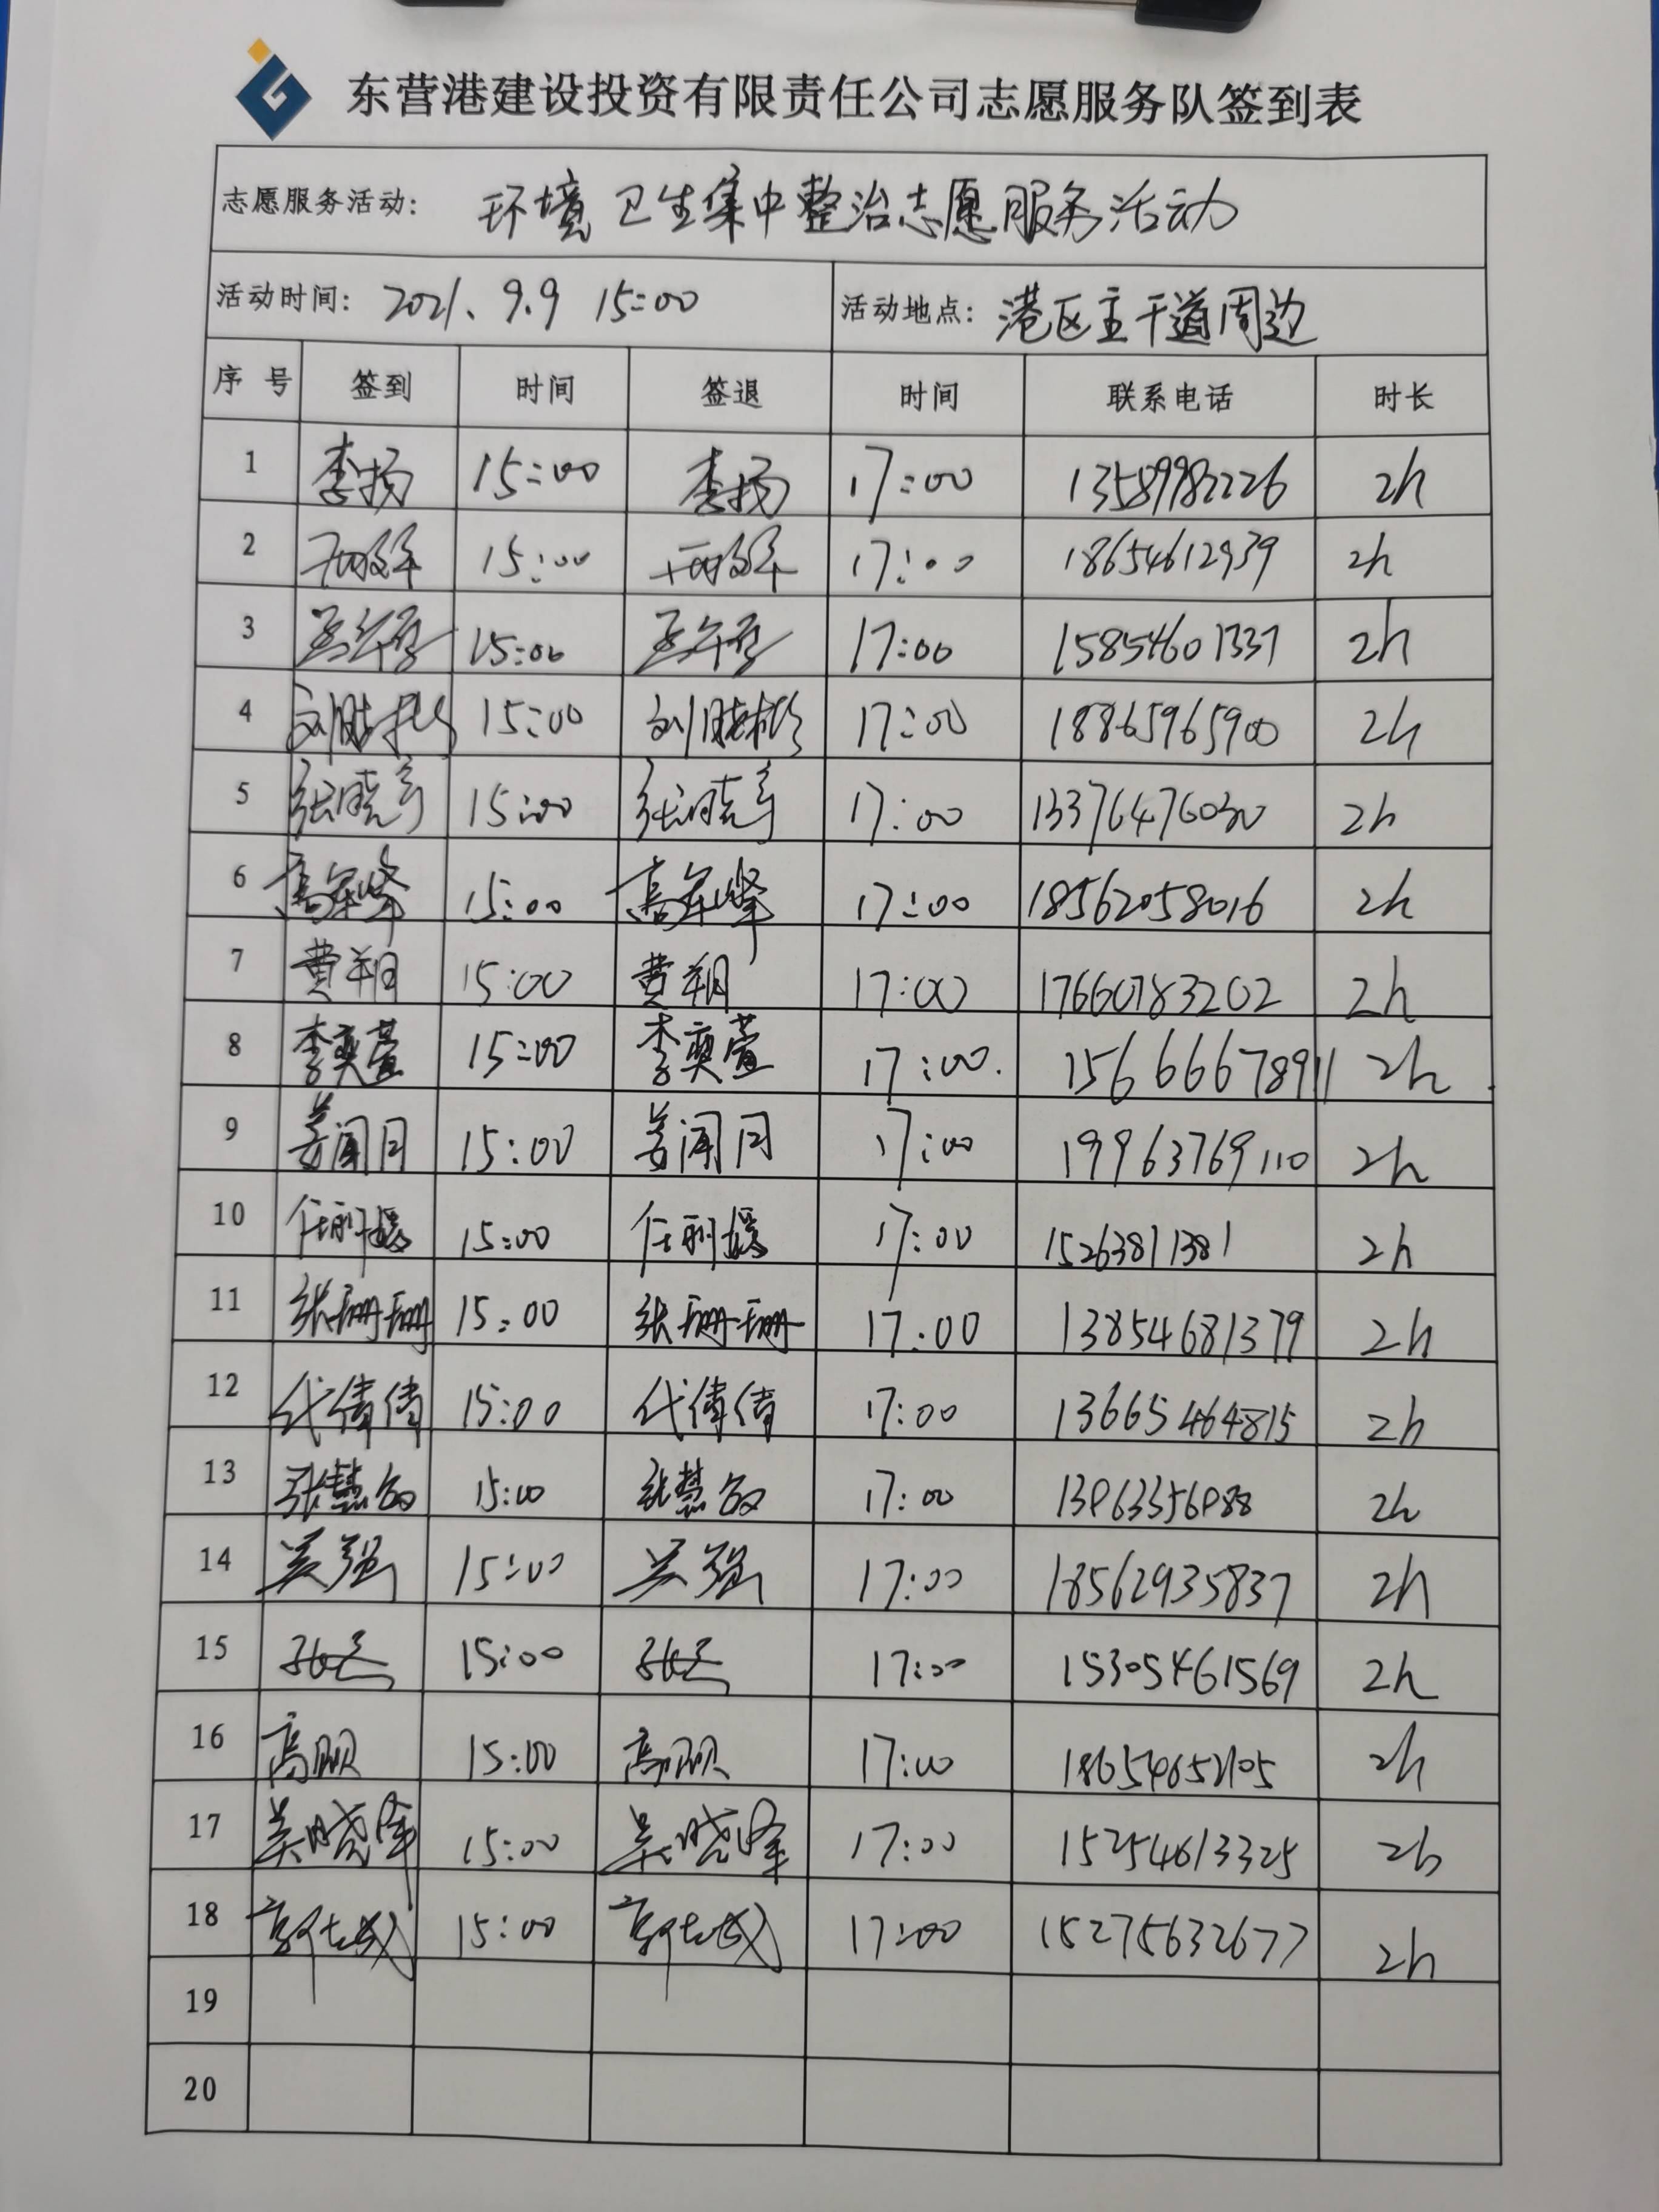 东营港建设投资有限责任公司志愿服务队签到表
志愿服务活动: 环境卫生集中整治志愿服务活动
活动时间: 2021、9.9 15:00 活动地点: 港区主干道周边
序号 签到 时间 签退 时间 联系电话 时长
1 李扬 15:00 李扬 17:00 13589982226 2h
2 15:00 17:00 18654612939 2h
3 15:00 17:00 15854601337 2h
4 刘晓彬 15:00 刘晓彬 17:00 18865965900 2h
5 张晓亭 15:00 张晓亭 17:00 13376476030 2h
6 高军峰 15:00 高军峰 17:00 18562058016 2h
7 费翔 15:00 费翔 17:00 17660783202 2h
8 李奕萱 15:00 李奕萱 17:00. 15666667891 2h
9 姜闻月 15:00 姜闻月 17:00 19963769110 2h
10 任利媛 15:00 任利媛 17:00 15263811381 2h
11 张珊珊 15:00 张珊珊 17:00 13854681379 2h
12 代倩倩 15:00 代倩倩 17:00 13665464815 2h
13 张慧敏 15:00 张慧敏 17:00 2h
14 吴强 15:00 吴强 17:00 18562935837 2h
15 15:00 17:00 15305461569 2h
16 高硕 15:00 高硕 17:00 18654652105 2h
17 吴晓峰 15:00 吴晓峰 17:00 15254613325 2h
18 15:00 17:00 15275632677 2h
19
20